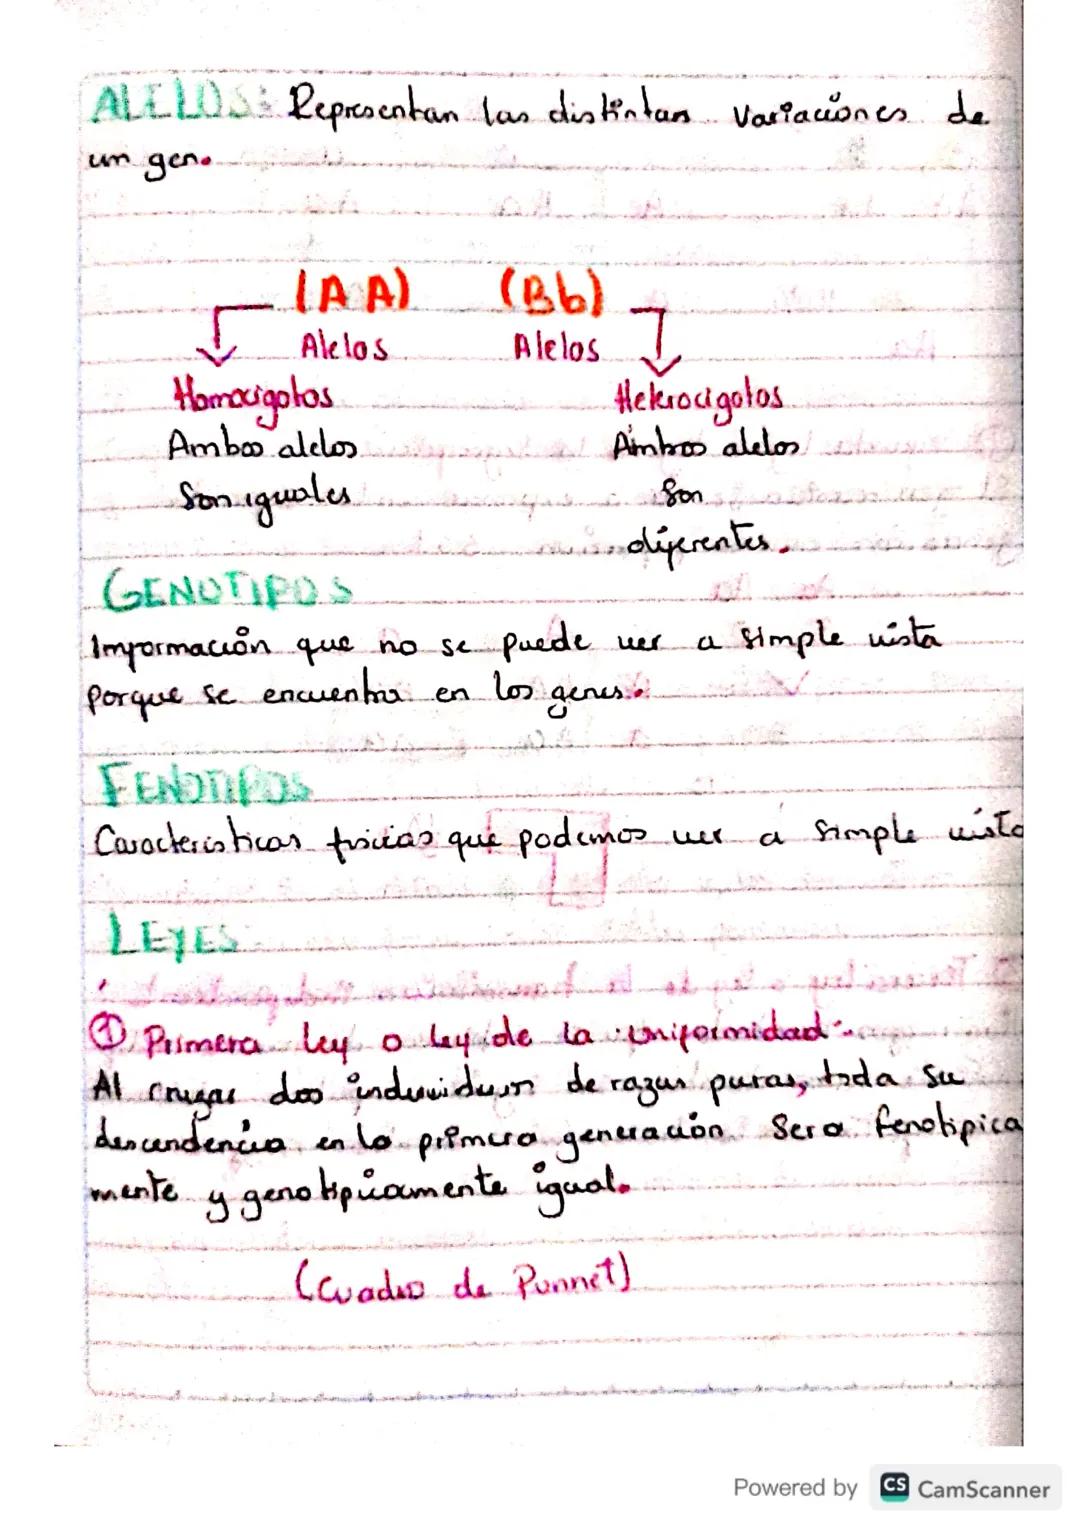 ALELOS: Representan las distintas variaciones de
un gen.
(AA) (Bb)
Alelos Alelos
Homocigotos Heterocigotos
Ambos alelos Ambos alelos
Son iguales Son
diferentes.
GENOTIPOS
Información que no se puede ver a simple vista
porque se encuentra en los genes.
FENOTIPOS
Caracteristicas fisicas que podemos ver a simple vista
LEYES
① Primera ley o ley de la uniformidad:
Al cruzar dos individuos de razas puras, toda su
descendencia en la primera generación Sera fenotipica
mente y genotipicamente igual.
(Cuadro de Punnet)
Powered by CS CamScanner